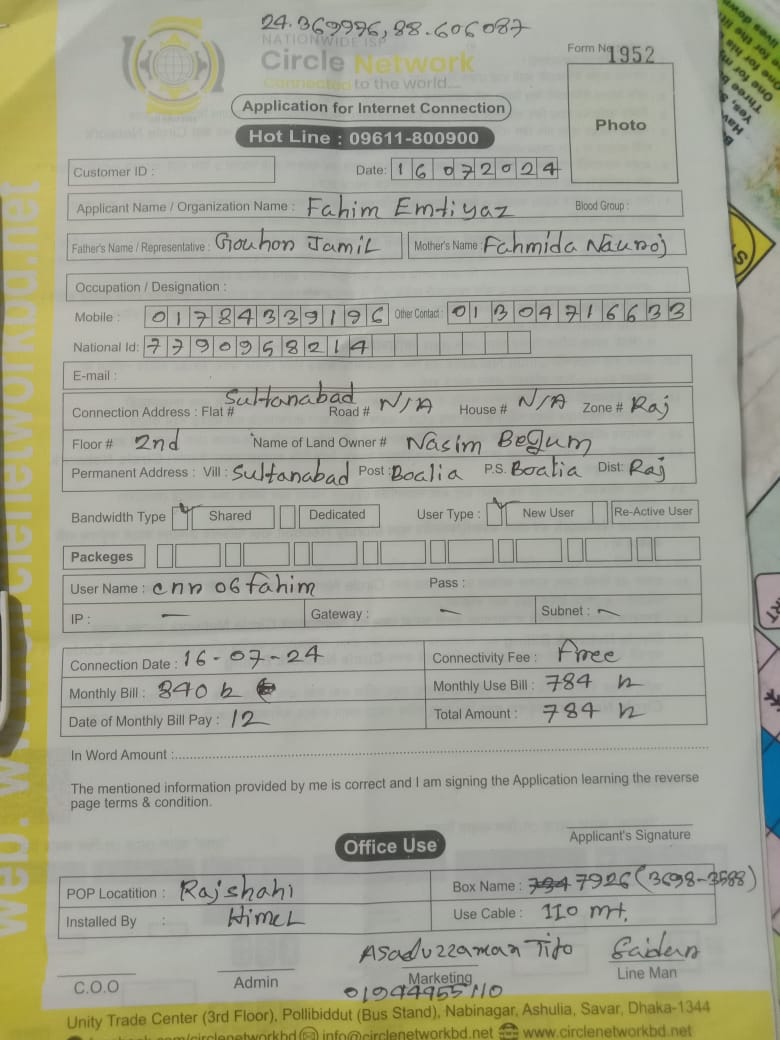 24.369996, 88.606087
NATIONWIDE ISP
Circle Network
Connected to the world....
Form No 1952
Application for Internet Connection
Hot Line : 09611-800900
Photo
Customer ID :
Date: 16072024
Applicant Name / Organization Name : Fahim Emtiyaz Blood Group :
Father's Name / Representative : Gouhon Jamil Mother's Name : Fahmida Naunoj
Occupation / Designation :
Mobile : 01784339196 Other Contact : 01304716633
National Id: 7790958214
E-mail :
Connection Address : Flat # Sultanabad Road # N/A House # N/A Zone # Raj
Floor # 2nd Name of Land Owner # Nasim Begum
Permanent Address : Vill : Sultanabad Post : Boalia P.S. Boalia Dist: Raj
Bandwidth Type Shared Dedicated User Type : New User Re-Active User
Packeges
User Name : cnn 06 fahim Pass :
IP : — Gateway : — Subnet : —
Connection Date : 16-07-24 Connectivity Fee : Free
Monthly Bill : 840 Monthly Use Bill : 784
Date of Monthly Bill Pay : 12 Total Amount : 784
In Word Amount :
The mentioned information provided by me is correct and I am signing the Application learning the reverse
page terms & condition.
Applicant's Signature
Office Use
POP Locatition : Rajshahi Box Name : 7926 (3698-3588)
Installed By : Himel Use Cable : 110 mt.
Asaduzzaman Tito
C.O.O Admin Marketing Line Man
01944955110
Unity Trade Center (3rd Floor), Pollibiddut (Bus Stand), Nabinagar, Ashulia, Savar, Dhaka-1344
info@circlenetworkbd.net www.circlenetworkbd.net
web: www.circlenetworkbd.net